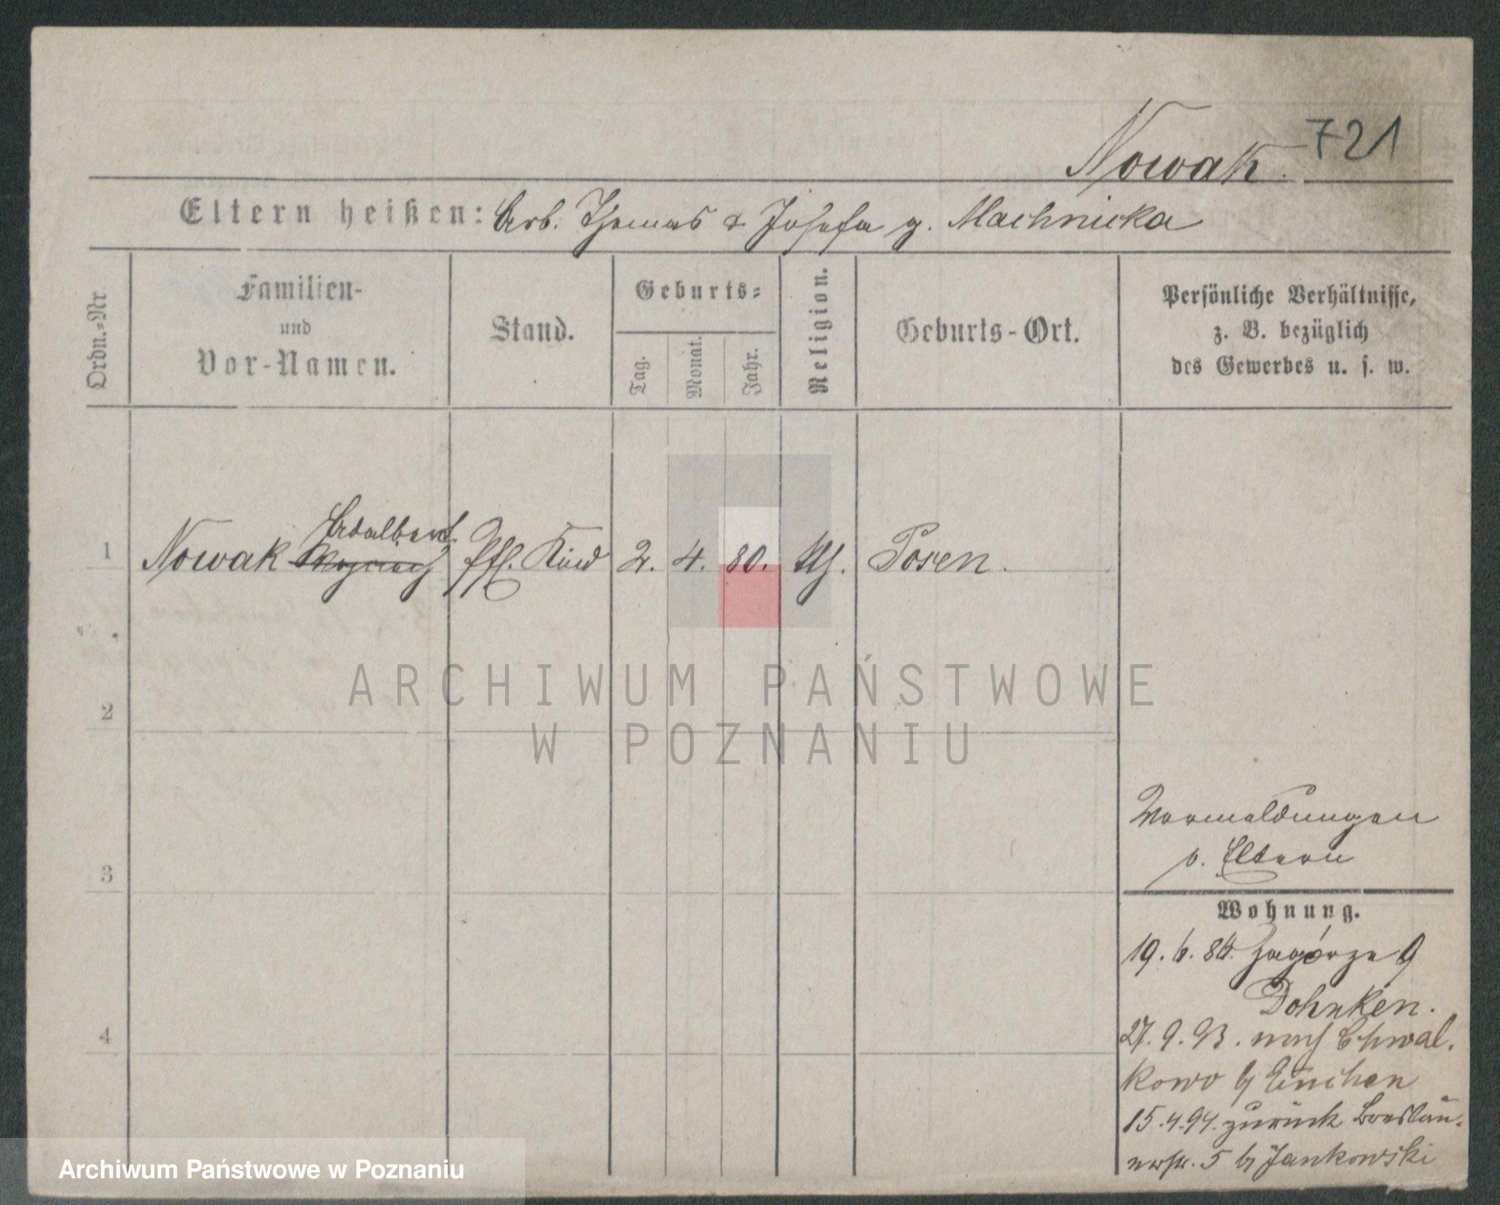 Nowak. 721
Eltern heißen: Arb. Thomas & Josefa g. Machnicka
Ordn.-Nr
Familien-
und
Vor-Namen.
Stand.
Geburts-
Tag.
Monat.
Jahr.
Religion.
Geburts-Ort.
Persönliche Verhältnisse,
z. B. bezüglich
des Gewerbes u. s. w.
Adalbert
1 Nowak pfl. Kind 2. 4. 80. Kh. Posen.
ARCHIWUM PAŃSTWOWE
W POZNANIU
2
3
4
Vormeldungen
s. Eltern
Wohnung.
19. 6. 84. Zagórze 9
Dohnken.
27. 9. 93. nach Chwal-
kowo b/
15.4.94. zurück Breslau-
erstr. 5 b/ Jankowski
Archiwum Państwowe w Poznaniu